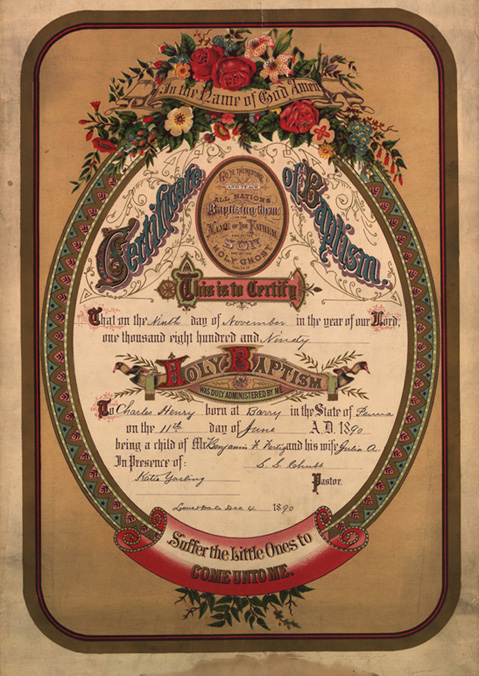 In the Name of God Amen
Certificate of Baptism.
GO YE THEREFORE
AND TEACH
ALL NATIONS
Baptizing them
IN THE
NAME OF THE FATHER
AND OF THE
SON
AND OF THE
HOLY GHOST
This is to Certify
That on the Ninth day of November in the year of our Lord,
one thousand eight hundred and Ninety
HOLY BAPTISM
WAS DULY ADMINISTERED BY ME
To Charles Henry born at Barry in the State of Penna
on the 11th day of June A.D. 1890
being a child of Mr Benjamin F. and his wife Julia A.
In Presence of:
Katie
Pastor.
Dec 4 1890
Suffer the Little Ones to
COME UNTO ME.